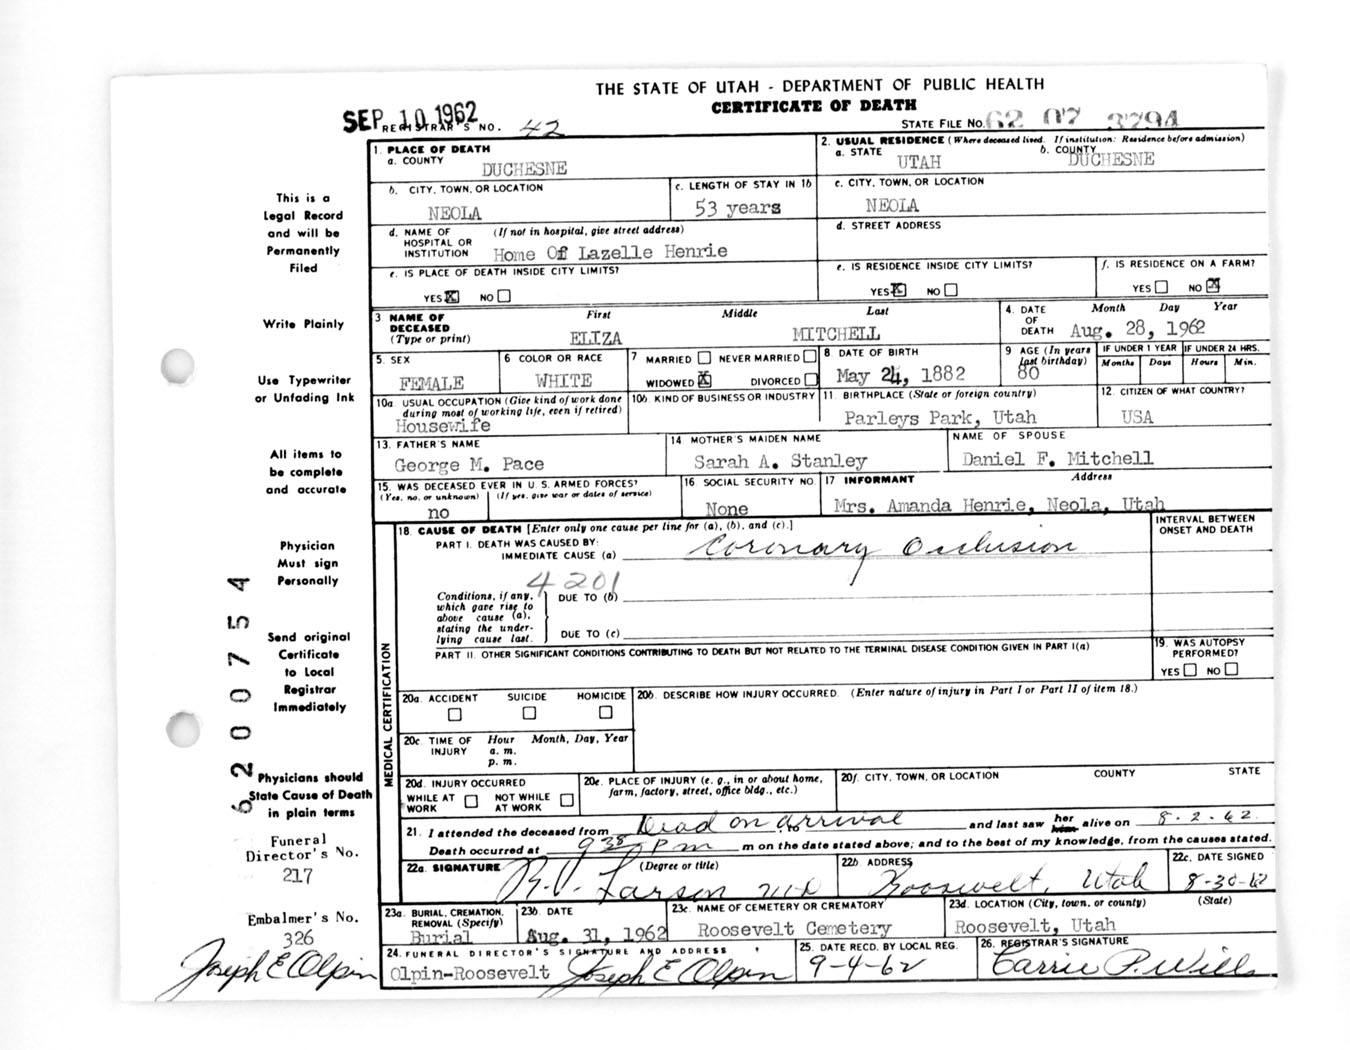 THE STATE OF UTAH - DEPARTMENT OF PUBLIC HEALTH
CERTIFICATE OF DEATH
SEP 10 1962
REGISTRAR'S NO. 42
STATE FILE NO. 62 07 3794
This is a
Legal Record
and will be
Permanently
Filed
Write Plainly
Use Typewriter
or Unfading Ink
All items to
be complete
and accurate
Physician
Must sign
Personally
Send original
Certificate
to Local
Registrar
Immediately
Physicians should
State Cause of Death
in plain terms
Funeral
Director's No.
217
Embalmer's No.
326
Joseph E Olpin
6200754
1. PLACE OF DEATH
a. COUNTY DUCHESNE
2. USUAL RESIDENCE (Where deceased lived. If institution: Residence before admission)
a. STATE UTAH b. COUNTY DUCHESNE
b. CITY, TOWN, OR LOCATION NEOLA
c. LENGTH OF STAY IN 1b 53 years
c. CITY, TOWN, OR LOCATION NEOLA
d. NAME OF HOSPITAL OR INSTITUTION (If not in hospital, give street address) Home Of Lazelle Henrie
d. STREET ADDRESS
e. IS PLACE OF DEATH INSIDE CITY LIMITS?
YES X NO
e. IS RESIDENCE INSIDE CITY LIMITS?
YES X NO
f. IS RESIDENCE ON A FARM?
YES NO X
3 NAME OF DECEASED (Type or print) First Middle Last
ELIZA MITCHELL
4. DATE OF DEATH Month Day Year
Aug. 28, 1962
5. SEX FEMALE
6 COLOR OR RACE WHITE
7 MARRIED NEVER MARRIED
WIDOWED X DIVORCED
8 DATE OF BIRTH May 24, 1882
9 AGE (In years last birthday) 80
IF UNDER 1 YEAR Months Days
IF UNDER 24 HRS. Hours Min.
10a. USUAL OCCUPATION (Give kind of work done during most of working life, even if retired) Housewife
10b. KIND OF BUSINESS OR INDUSTRY
11. BIRTHPLACE (State or foreign country) Parleys Park, Utah
12. CITIZEN OF WHAT COUNTRY? USA
13. FATHER'S NAME George M. Pace
14 MOTHER'S MAIDEN NAME Sarah A. Stanley
NAME OF SPOUSE Daniel F. Mitchell
15. WAS DECEASED EVER IN U.S. ARMED FORCES?
(Yes, no, or unknown) (If yes, give war or dates of service)
no
16 SOCIAL SECURITY NO. None
17 INFORMANT Address
Mrs. Amanda Henrie, Neola, Utah
MEDICAL CERTIFICATION
18. CAUSE OF DEATH [Enter only one cause per line for (a), (b), and (c).]
INTERVAL BETWEEN ONSET AND DEATH
PART I. DEATH WAS CAUSED BY:
IMMEDIATE CAUSE (a) Coronary Occlusion
4201
Conditions, if any, which gave rise to above cause (a), stating the underlying cause last.
DUE TO (b)
DUE TO (c)
PART II. OTHER SIGNIFICANT CONDITIONS CONTRIBUTING TO DEATH BUT NOT RELATED TO THE TERMINAL DISEASE CONDITION GIVEN IN PART I(a)
19. WAS AUTOPSY PERFORMED?
YES NO
20a. ACCIDENT SUICIDE HOMICIDE
20b. DESCRIBE HOW INJURY OCCURRED. (Enter nature of injury in Part I or Part II of item 18.)
20c. TIME OF INJURY Hour Month, Day, Year
a. m.
p. m.
20d. INJURY OCCURRED
WHILE AT WORK NOT WHILE AT WORK
20e. PLACE OF INJURY (e. g., in or about home, farm, factory, street, office bldg., etc.)
20f. CITY, TOWN, OR LOCATION COUNTY STATE
21. I attended the deceased from Dead on arrival to and last saw her him alive on 8-2-62
Death occurred at 9 35 P m m on the date stated above; and to the best of my knowledge, from the causes stated.
22a. SIGNATURE (Degree or title) R.V. Larson MD
22b. ADDRESS Roosevelt, Utah
22c. DATE SIGNED 8-30-62
23a. BURIAL, CREMATION, REMOVAL (Specify) Burial
23b. DATE Aug. 31, 1962
23c. NAME OF CEMETERY OR CREMATORY Roosevelt Cemetery
23d. LOCATION (City, town, or county) (State) Roosevelt, Utah
24. FUNERAL DIRECTOR'S SIGNATURE AND ADDRESS
Olpin-Roosevelt Joseph E Olpin
25. DATE RECD. BY LOCAL REG. 9-4-62
26. REGISTRAR'S SIGNATURE Carrie P. Wills